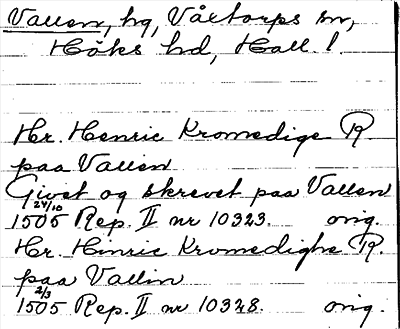 Vallen, hg, Våxtorps sn,
Höks hd, Hall. l.
Hr. Henric Kromedige R.
paa Vallen
Givet og skrevet paa Vallen
24/10
1505 Rep. II nr 10323. orig.
Hr. Hinric Kromedighe R.
paa Vallin
2/3
1505 Rep. II nr 10328. orig.